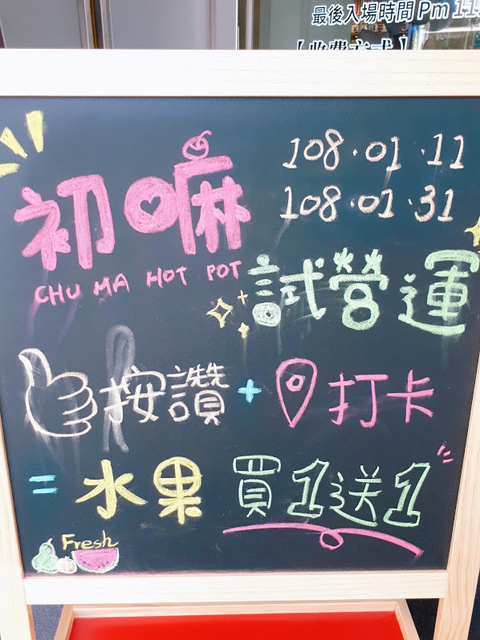 最後入場時間 Pm 11
【收費方式】
108.01.11
108.01.31
初嘛
CHU MA HOT POT
試營運
按讚 + 打卡
= 水果 買1送1
Fresh